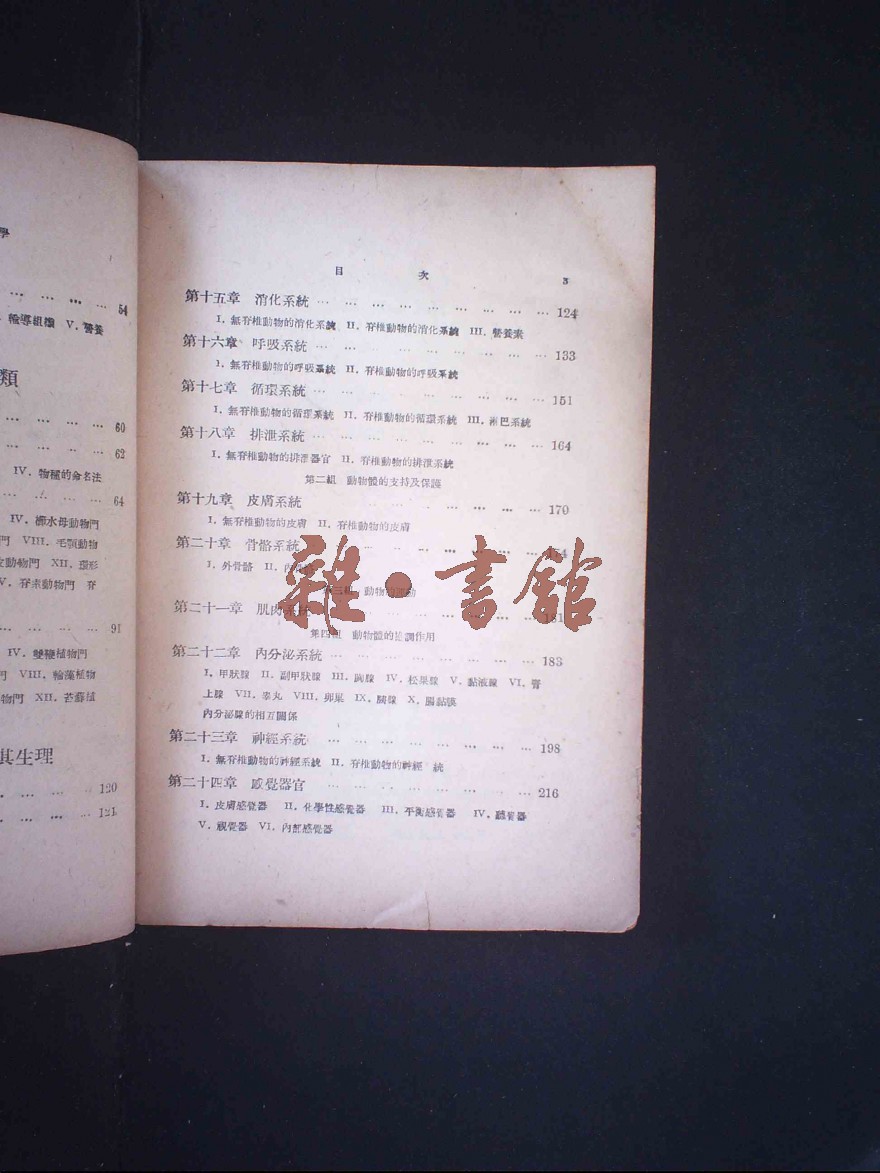 學
… … … … … 54
輸導組織 V. 營養
類
… … … … … 60
… … … … … 62
IV. 物種的命名法
… … … … … 64
IV. 櫛水母動物門
門 VIII. 毛顎動物
動物門 XII. 環形
V. 脊索動物門 脊
… … … … … 91
IV. 雙鞭植物門
門 VIII. 輪藻植物
物門 XII. 苔蘚植
其生理
… … … … 120
… … … … 121
目 次 3
第十五章 消化系統 … … … … … … … … … 124
I. 無脊椎動物的消化系統 II. 脊椎動物的消化系統 III. 營養素
第十六章 呼吸系統 … … … … … … … … … 133
I. 無脊椎動物的呼吸系統 II. 脊椎動物的呼吸系統
第十七章 循環系統 … … … … … … … … … 151
I. 無脊椎動物的循環系統 II. 脊椎動物的循環系統 III. 淋巴系統
第十八章 排泄系統 … … … … … … … … … 164
I. 無脊椎動物的排泄器官 II. 脊椎動物的排泄系統
第二組 動物體的支持及保護
第十九章 皮膚系統 … … … … … … … … … 170
I. 無脊椎動物的皮膚 II. 脊椎動物的皮膚
第二十章 骨骼系統 … … … … … … … … … 174
I. 外骨骼 II. 內
雜·書館
第三組 動物的運動
第二十一章 肌肉系統 … … … … … … … … 181
第四組 動物體的協調作用
第二十二章 內分泌系統 … … … … … … … … 183
I. 甲狀腺 II. 副甲狀腺 III. 胸腺 IV. 松果腺 V. 黏液腺 VI. 腎
上腺 VII. 睾丸 VIII. 卵巢 IX. 胰腺 X. 腸黏膜
內分泌腺的相互關係
第二十三章 神經系統 … … … … … … … … 198
I. 無脊椎動物的神經系統 II. 脊椎動物的神經 統
第二十四章 感覺器官 … … … … … … … … 216
I. 皮膚感覺器 II. 化學性感覺器 III. 平衡感覺器 IV. 聽覺器
V. 視覺器 VI. 內部感覺器